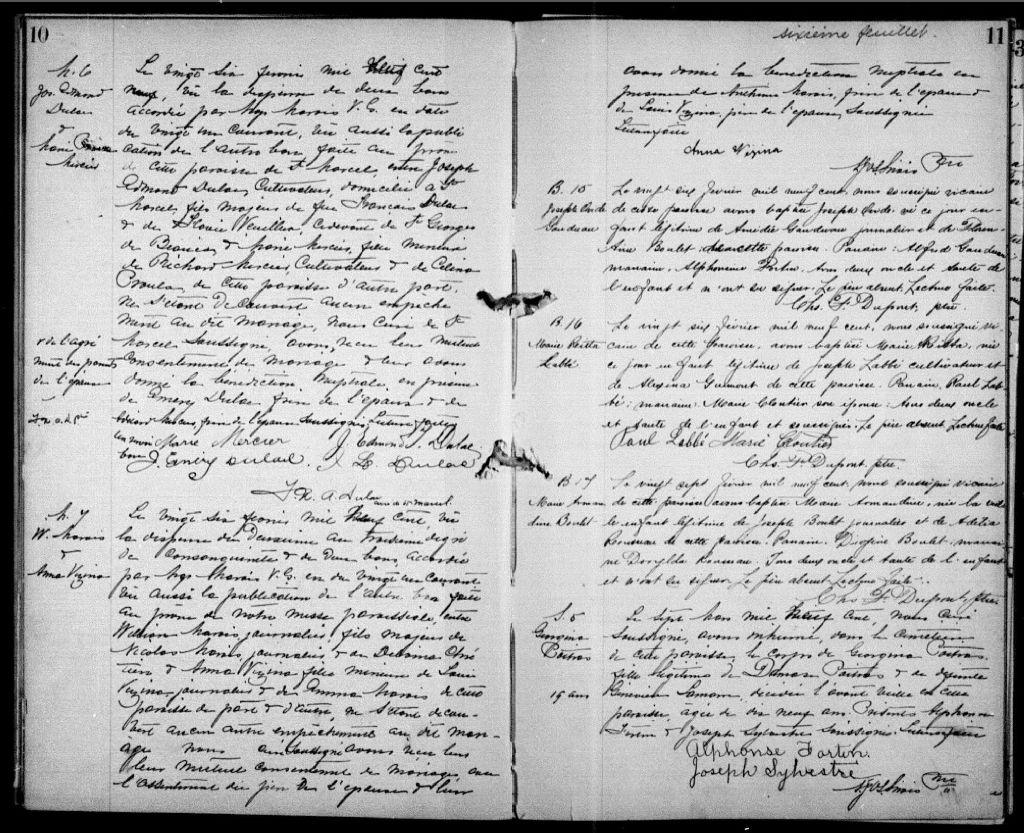 10
M. 6
Jos. Edmond
Dulac
&
Marie
Mercier
Le vingt six février mil neuf cent
neuf, vu la dispense de deux bans
accordée par Mgr Marois V. G. en date
du vingt un courant, vu aussi la publi
cation de l'autre ban faite au prône
de cette paroisse de St Marcel, entre Joseph
Edmond Dulac, Cultivateur, domicilié à St
Marcel, fils majeur de feu Francois Dulac
& de Veuilleu, ci-devant de St Georges
de Beauce, & Marie Mercier, fille mineure
de Richard Mercier, Cultivateur & de Célina
de cette paroisse d'autre part,
ne s'étant découvert aucun empêche
ment au dit mariage, nous curé de St
Marcel soussigné avons, reçu leur mutuel
consentement de mariage & leur avons
donné la bénédiction nuptiale en présence
de Emery Dulac frère de l'époux & de
Mercier, frère de l'épouse soussignés. Lecture faite
+ de l'agré
ment des parents
de l'épouse
Marie Mercier
J. Edmond Dulac
J. Emery Dulac. J. L. Dulac
F. X. A. Dulac
M. 7
W. Marois
&
Anna Vézina
Le vingt six février mil neuf cent, vu
la dispense du deuxième au troisième degré
de consanguinité & de deux bans, accordée
par Mgr Marois V. G. en du vingt un courant
vu aussi la publication de l'autre ban faite
au prône de notre messe paroissiale, entre
William Marois, journalier, fils majeur de
Nicolas Marois, journalier & de Delvina
& Anna Vézina fille mineure de Louis
Vézina journalier & de Emma Marois de cette
paroisse de part & d'autre, ne s'étant décou-
vert aucun autre empêchement au dit mari-
age nous curé soussigné avons reçu leur
leur mutuel consentement de mariage, avec
l'assentiment du père de l'épouse & leur
sixième feuillet.
11
avons donné la bénédiction nuptiale en
présence de Anthime Marois, frère de l'époux &
de Louis Vézina, père de l'épouse, soussignés
Lecture faite
Anna Vézina
Ptre
B. 15
Joseph
Gaudreau
Le vingt six février mil neuf cent, nous soussigné vicaire
de cette paroisse avons baptisé Joseph né ce jour en-
fant légitime de Amédée Gaudreau journalier et de
Anne Boulet de cette paroisse. Parrain: Alfred Gaudreau
marraine, Alphonsine Fortin, tous deux oncle et tante de
l'enfant et n'ont su signer. Le père absent. Lecture faite.
Chs. F. Dupont, ptre
B. 16
Marie Rosilda
Labbé
Le vingt six février mil neuf cent, nous soussigné vi
caire de cette paroisse, avons baptisé Marie née
ce jour enfant légitime de Joseph Labbé cultivateur et
de Guimont de cette paroisse. Parrain, Paul Lab
bé; marraine: Marie Cloutier son épouse: tous deux oncle
et tante de l'enfant et soussignés. Le père absent. Lecture faite
Paul Labbé Marie Cloutier
Chs. F. Dupont. ptre.
B. 17
Marie Aman
dine Boulet
Le vingt sept février mil neuf cent, nous soussigné vicaire
de cette paroisse avons baptisé Marie Amandine, née la veille
enfant légitime de Joseph Boulet journalier et de Adélia
Rousseau de cette paroisse. Parrain: Boulet; marrai
ne Dorylda Rousseau, tous deux oncle et tante de l'enfant
et n'ont su signer. Le père absent. Lecture faite.
Chs F. Dupont, ptre
S. 5
Georgina
Poitras
19 ans
Le sept mars mil neuf cent, nous curé
soussigné, avons inhumé, dans le cimetière
de cette paroisse, le corps de Georgina Poitras,
fille légitime de Damase Poitras & de défunte
Geneviève décédée l'avant veille en cette
paroisse, agée de dix neuf ans. Présents Alphonse
Fortin & Joseph Sylvestre soussignés. Lecture faite
Alphonse Fortin.
Joseph Sylvestre
Ptre